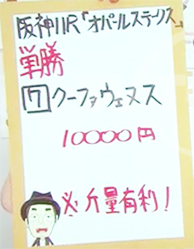 阪神11R『オパールステークス』
単勝
7 クーファウェヌス
10000円
※斤量有利!